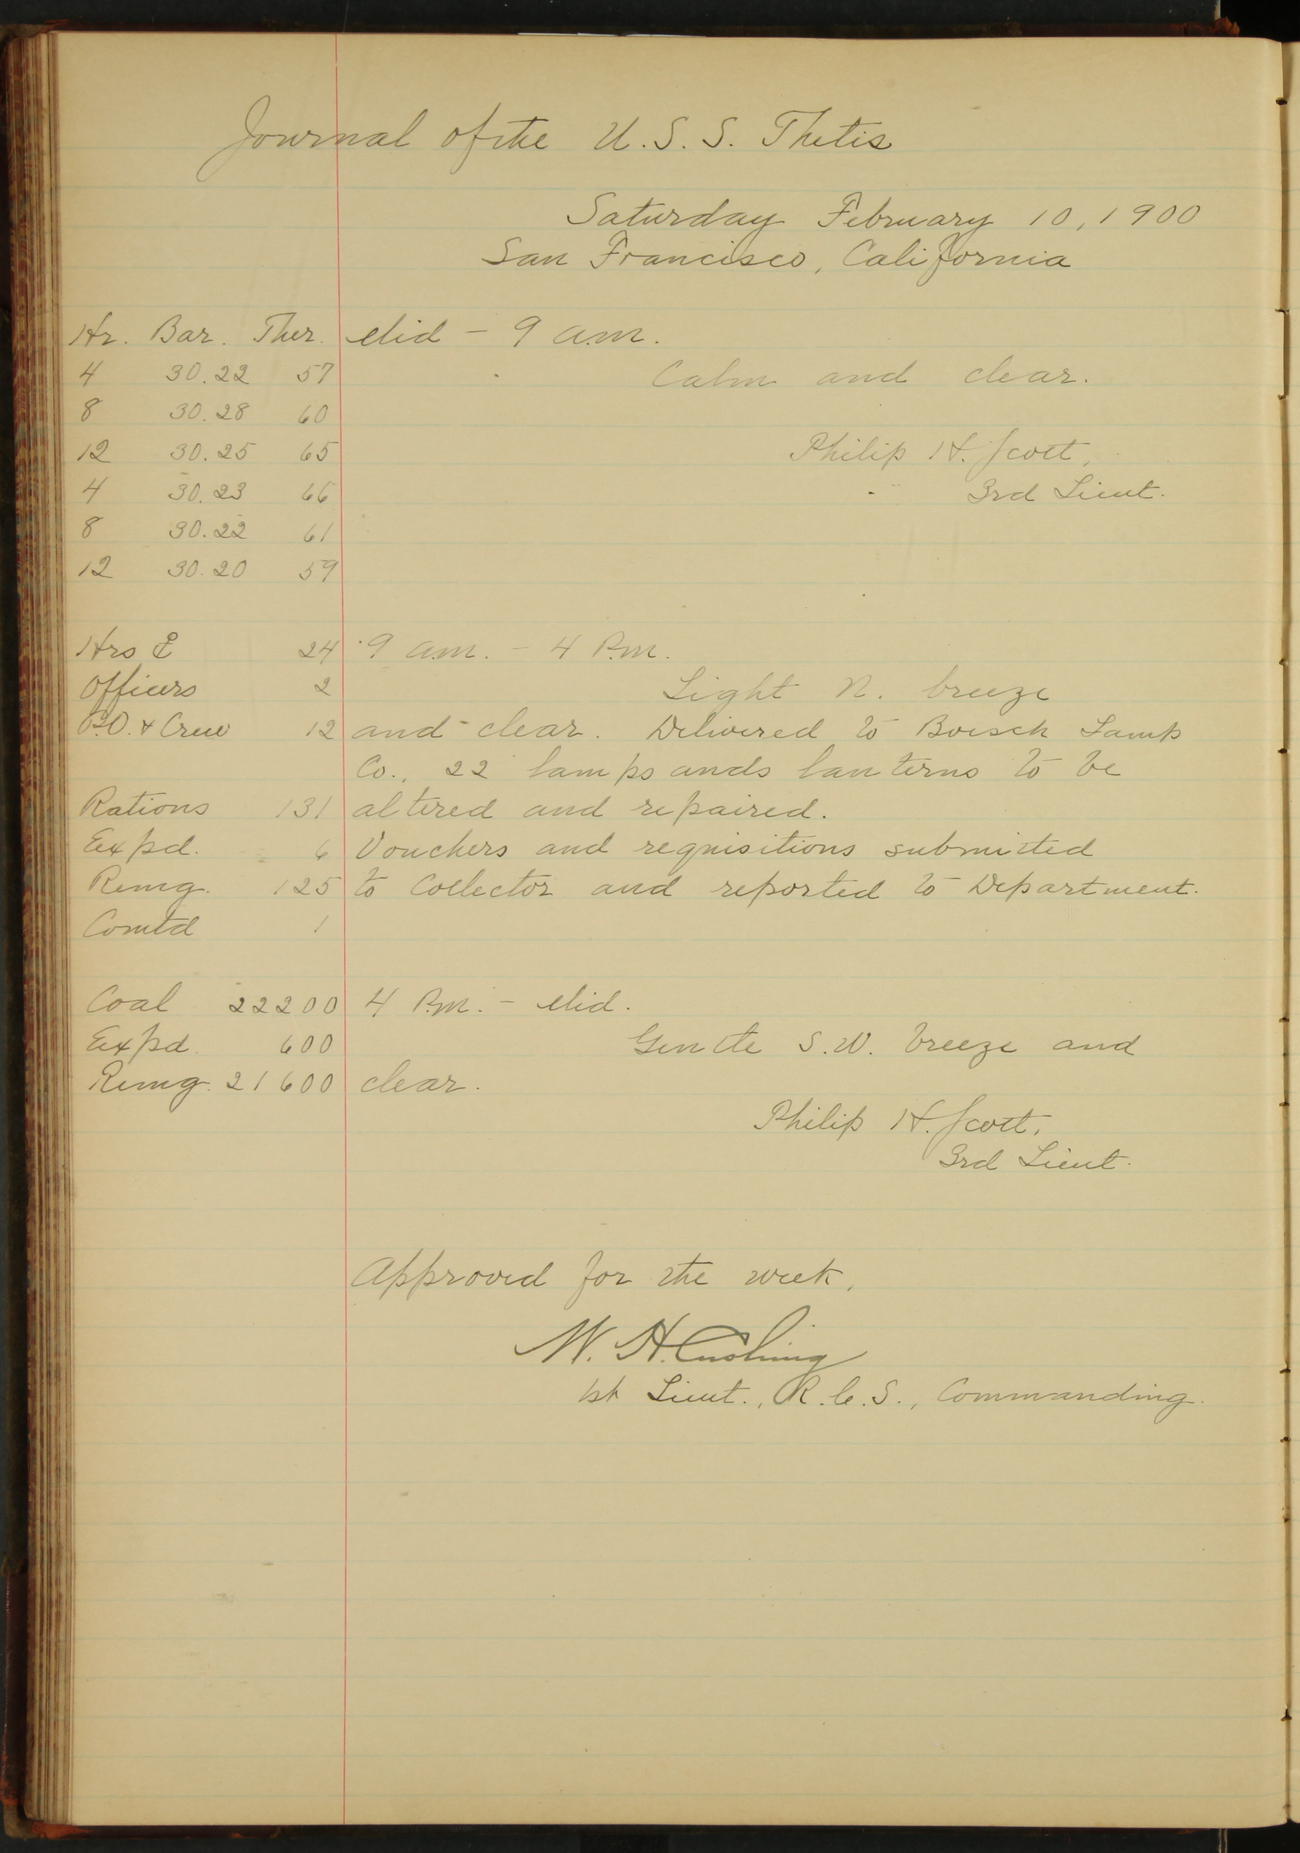 Journal of the U. S. S. Thetis
Saturday February 10, 1900
San Francisco, California
Hr. Bar. Ther. Mid - 9 a.m.
4 30.22 57 Calm and clear.
8 30.28 60
12 30.25 65 Philip H. Scott,
4 30.23 66 3rd Lieut.
8 30.22 61
12 30.20 59
Hrs @ 24 9 a.m. - 4 P.m.
Officers 2 Light N. breeze
P.O. & Crew 12 and clear. Delivered to Boesch Lamp
Co., 22 lamps ands lanterns to be
Rations 131 altered and repaired.
Expd. 6 Vouchers and requisitions submitted
Remg. 125 to Collector and reported to Department.
Comtd 1
Coal 22200 4 P.m. - Mid.
Expd. 600 Gentle S.W. breeze and
Remg. 21600 clear.
Philip H. Scott,
3rd Lieut.
Approved for the week,
W. H. Cushing
1st Lieut., R.C.S., Commanding.